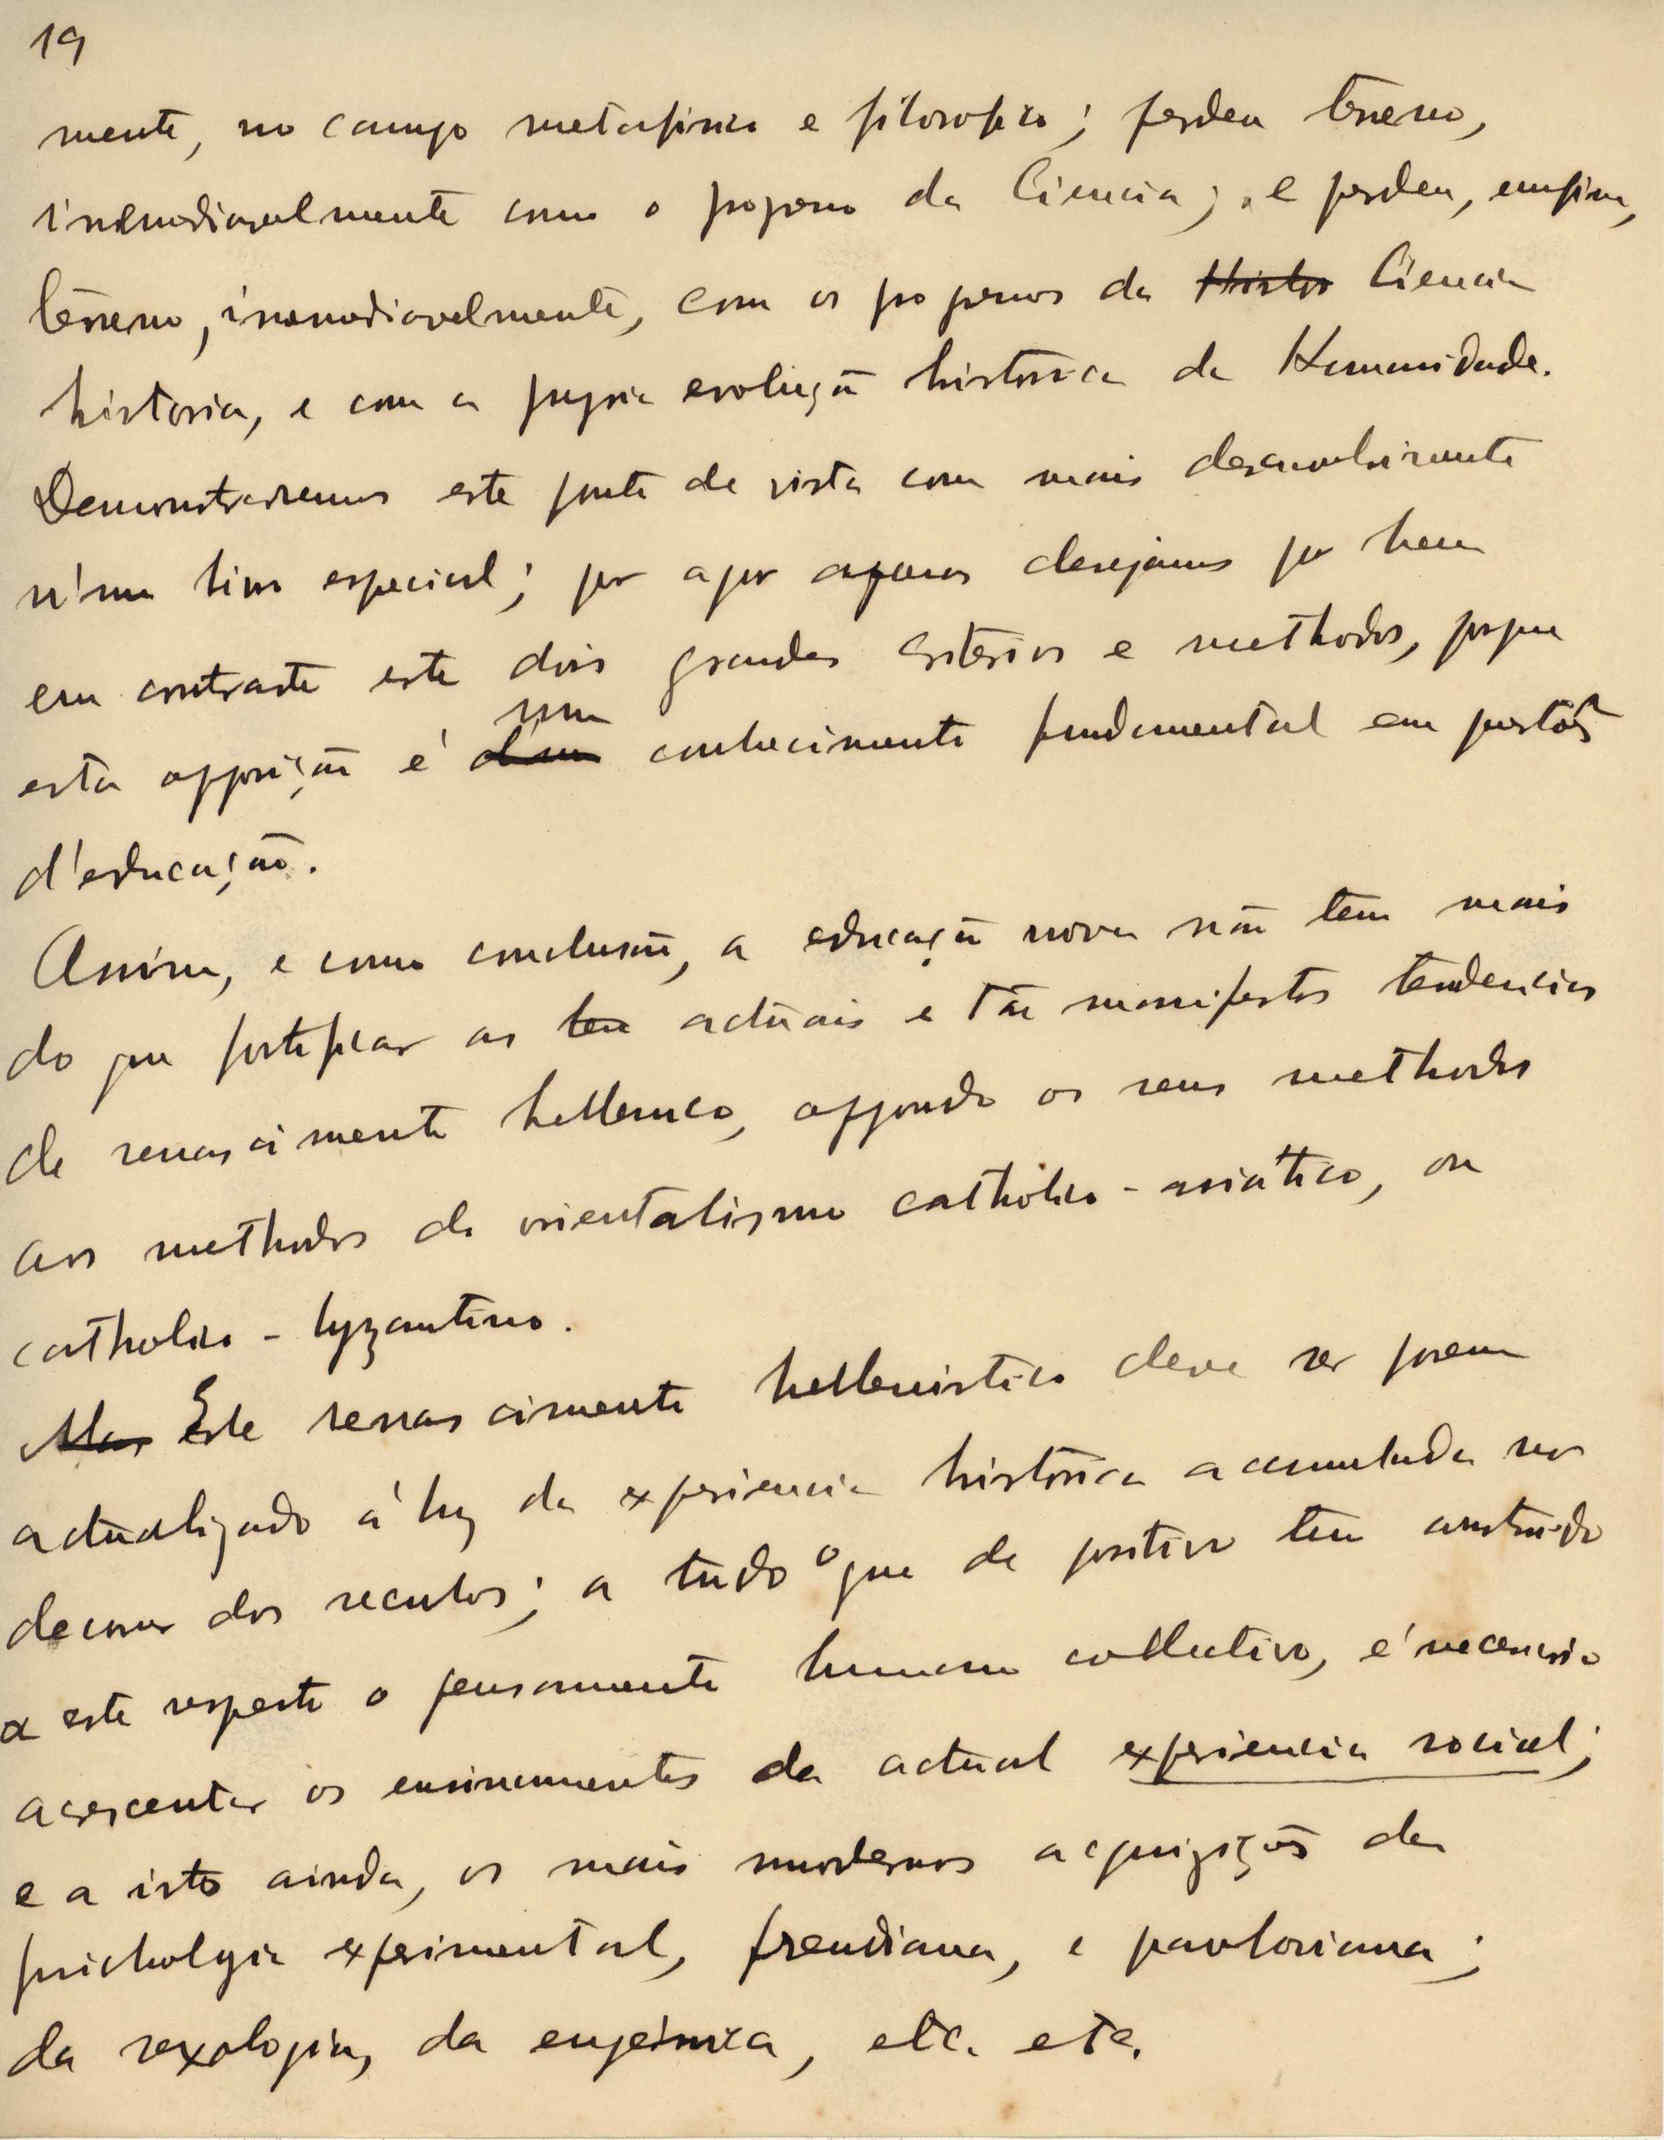 19
mente, no campo metafisico e filosofico; perdeu terreno,
irremediavelmente com o progresso da Ciencia; e perdeu, emfim,
terreno, irremediavelmente, com os progressos da Histor Ciencia
historia, e com a propria evolução historica da Humanidade.
Demonstraremos este ponto de vista com mais desenvolvimento
n'um livro especial; por agora apenas desejamos pôr bem
em contraste estes dois grandes criterios e methodos, porque
esta opposição é d'um um conhecimento fundamental em questões
d'educação.
Assim, e como conclusão, a educação nova não tem mais
do que fortificar as ten actuais e tão manifestas tendencias
de renascimento hellenico, oppondo os seus methodos
aos methodos do orientalismo catholico-asiatico, ou
catholico-byzantino.
Mas Este renascimento hellenistico deve ser porem
actualizado á luz da experiencia histórica acumulada no
decorrer dos seculos; a tudo o que de positivo tem construido
a este respeito o pensamento humano collectivo, é necessario
acrescentar os ensinamentos da actual experiencia social;
e a isto ainda, as mais modernas acquizições da
psichologia experimental, freudiana, e pavloviana;
da sexologia, da eugénica, etc. etc.